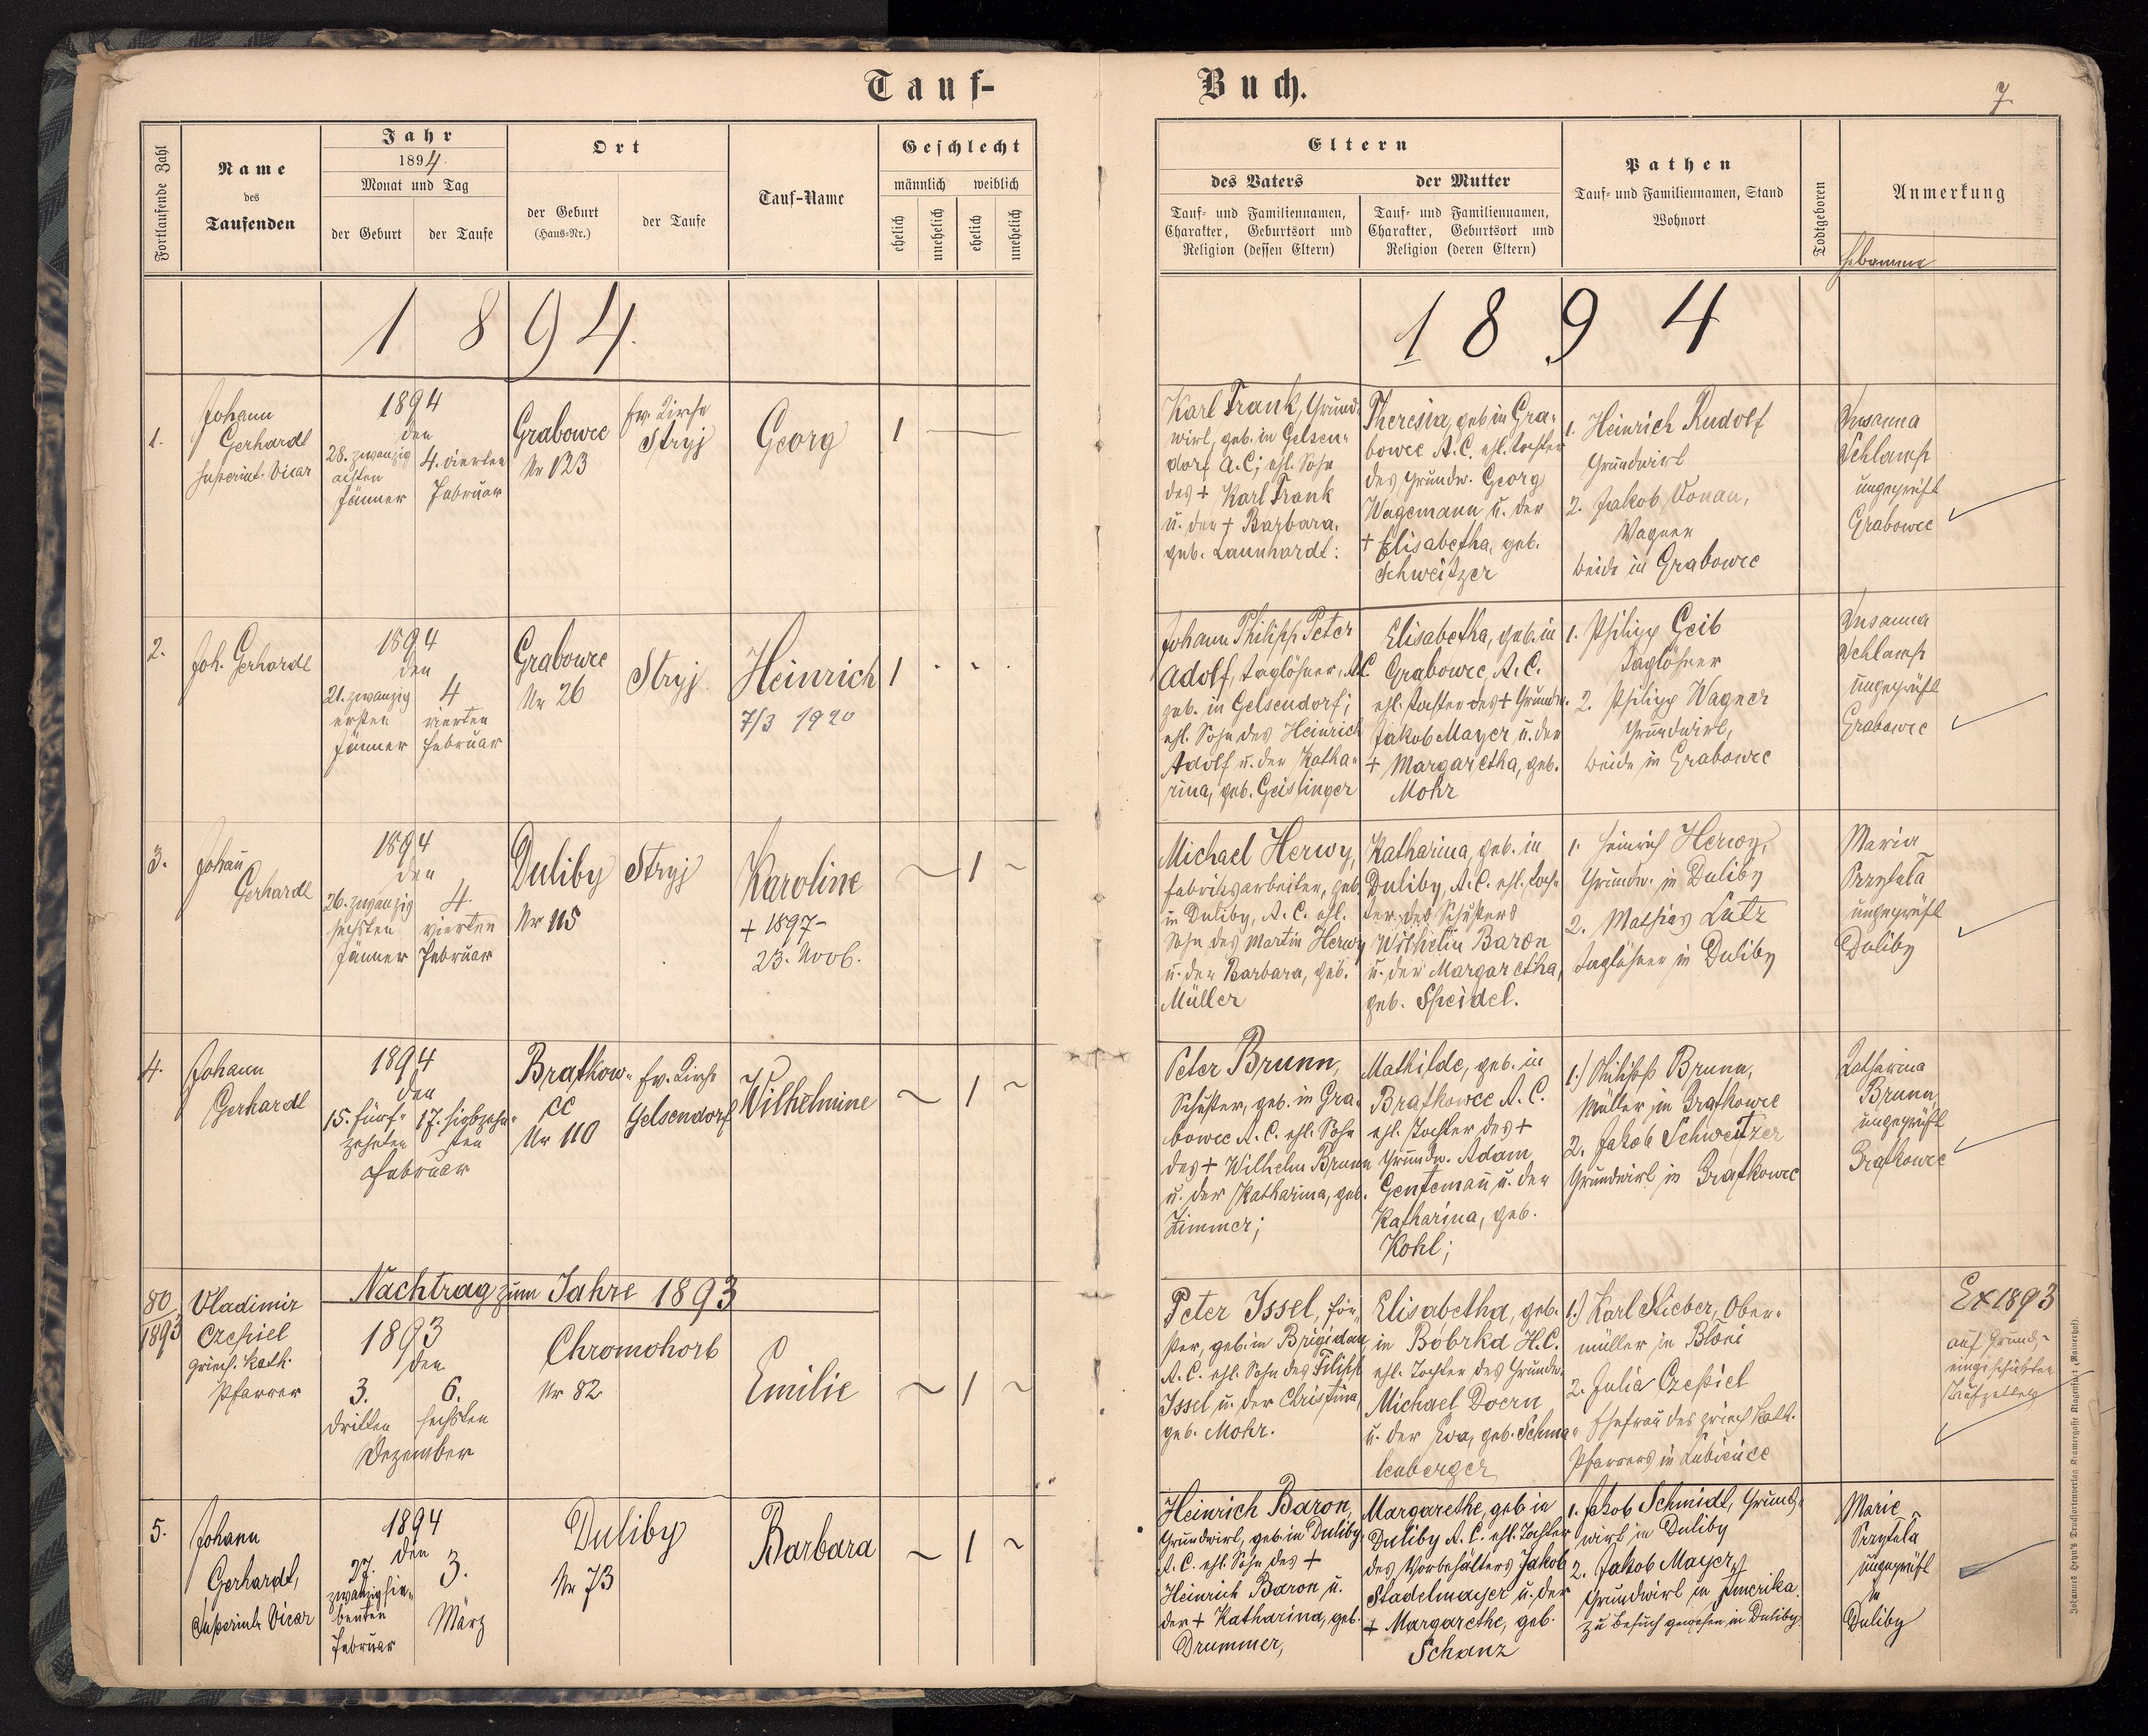 Tauf-
Buch.
7
Fortlaufende Zahl
Name
des
Taufenden
Jahr
1894.
Monat und Tag
der Geburt
der Taufe
Ort
der Geburt
(Haus-Nr.)
der Taufe
Tauf-Name
Geschlecht
männlich
weiblich
ehelich
unehelich
ehelich
unehelich
Eltern
des Vaters
der Mutter
Tauf- und Familiennamen,
Charakter, Geburtsort und
Religion (dessen Eltern)
Tauf- und Familiennamen,
Charakter, Geburtsort und
Religion (deren Eltern)
Pathen
Tauf- und Familiennamen, Stand
Wohnort
Todtgeboren
Anmerkung
Hebamme
1894.
1894
1.
Johann
Gerhardt
Superint. Vicar
1894
den
28. zwanzig
achten
Jänner
4. vierten
Februar
Grabowce
Nr 123
ev. Kirche
Stryj
Georg
1
Karl Frank, Grund-
wirt, geb. in Gelsen-
dorf A.C; ehl. Sohn
des + Karl Frank
u. der + Barbara,
geb. Launhardt:
Theresia, geb. in Gra-
bowce A.C. ehl. Tochter
des Grundw. Georg
Wagemann u. der
+ Elisabetha, geb.
Schweitzer
1. Heinrich Rudolf
Grundwirt
2. Jakob Donau,
Wagner
beide in Grabowce
Susanna
Schlamp
ungeprüft
Grabowce
2.
Joh. Gerhardt
1894
den
21. zwanzig
ersten
Jänner
4
vierten
Februar
Grabowce
Nr 26
Stryj
Heinrich
7/3 1920
1
Johann Philipp Peter
Adolf, Taglöhner, A.C.
geb. in Gelsendorf;
ehl. Sohn des Heinrich
Adolf u. der Katha-
rina, geb. Geislinger
Elisabetha, geb. in
Grabowce, A.C.
ehl. Tochter des + Grundw.
Jakob Mayer u. der
+ Margaretha, geb.
Mohr
1. Philipp Geib
Taglöhner
2. Philipp Wagner
Grundwirt,
beide in Grabowce
Susanna
Schlamp
ungeprüft
Grabowce
3.
Johann
Gerhardt
1894
den
26. zwanzig
sechsten
Jänner
4.
vierten
Februar
Duliby
Nr 115
Stryj
Karoline
+ 1897-
23. Novb.
1
Michael Herwy,
Fabriksarbeiter, geb.
in Duliby, A.C. ehl.
Sohn des Martin Herwy
u. der Barbara, geb.
Müller
Katharina, geb. in
Duliby, A.C. ehl. Toch-
ter des Schusters
Wilhelm Baron
u. der Margaretha,
geb. Speidel.
1. Heinrich Herwy,
Grundw. in Duliby
2. Mathias Lutz
Taglöhner in Duliby
Maria
Przytula
ungeprüft
Duliby
4.
Johann
Gerhardt
1894
den
15. fünf-
zehnten
17. siebzehn-
ten
Februar
Bratkow-
ce
Nr 110
ev. Kirche
Gelsendorf
Wilhelmine
1
Peter Brunn,
Schuster, geb. in Gra-
bowce A.C. ehl. Sohn
des + Wilhelm Brunn
u. der Katharina, geb.
Zimmer;
Mathilde, geb. in
Bratkowce A.C.
ehl. Tochter des +
Grundw. Adam
Gentemann u. der
Katharina, geb.
Kohl;
1.) Philipp Brunn,
Müller in Bratkowce
2. Jakob Schweitzer
Grundwirt in Bratkowce
Katharina
Brunn,
ungeprüft
Bratkowce
Nachtrag zum Jahre 1893
80
1893
Vladimir
Czepiel
griech. kath.
Pfarrer
1893
den
3.
dritten
6.
sechsten
Dezember
Chromohorb
Nr 82
Emilie
1
Peter Issel, För-
ster, geb. in Brigidau,
A.C. ehl. Sohn des Filipp
Issel u. der Christina,
geb. Mohr.
Elisabetha, geb.
in Bóbrka H.C.
ehl. Tochter des Grundw.
Michael Doern
u. der Eva, geb. Schma-
lenberger
1.) Karl Stieber, Ober-
müller in
2. Julia Czepiel
Ehefrau des griech. kath.
Pfarrers in Lubience
Ex 1893
auf Grund
eingeschickten
Taufzettels
5.
Johann
Gerhardt,
Superint. Vicar
1894
den
27.
zwanzigsie-
benten
Februar
3.
März
Duliby
Nr 73
Barbara
1
Heinrich Baron,
Grundwirt, geb. in Duliby,
A.C. ehl. Sohn des +
Heinrich Baron u.
der + Katharina, geb.
Drummer,
Margarethe, geb. in
Duliby A.C. ehl. Tochter
des Vorbehälters Jakob
Stadelmayer u. der
+ Margarethe, geb.
Schanz
1. Jakob Schmidt, Grund-
wirt in Duliby
2. Jakob Mayer,
Grundwirt in Amerika
zu Besuch gewesen in Duliby.
Marie
Przytula
ungeprüft
in
Duliby